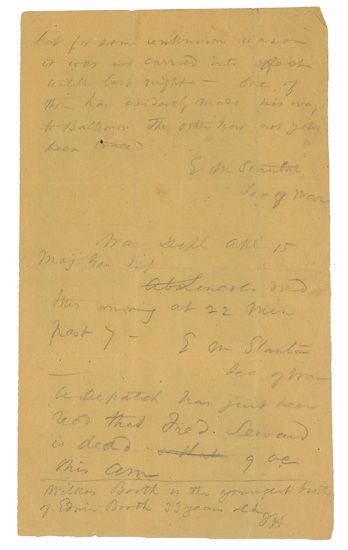 but for some unknown reason
it was not carried into effect
until last night - One of
them has evidently made his way
to Baltimore The other has not yet
been traced
E M Stanton
Sec of War
War Dept Apl 15
Maj Gen Dix
Abe Lincoln died
this morning at 22 min
past 7 -
E M Stanton
Sec of War
A Dispatch has just been
recd that Fred. Seward
is dead 9 oc
this am
Wilkes Booth is the youngest brother
of Edwin Booth 33 years old